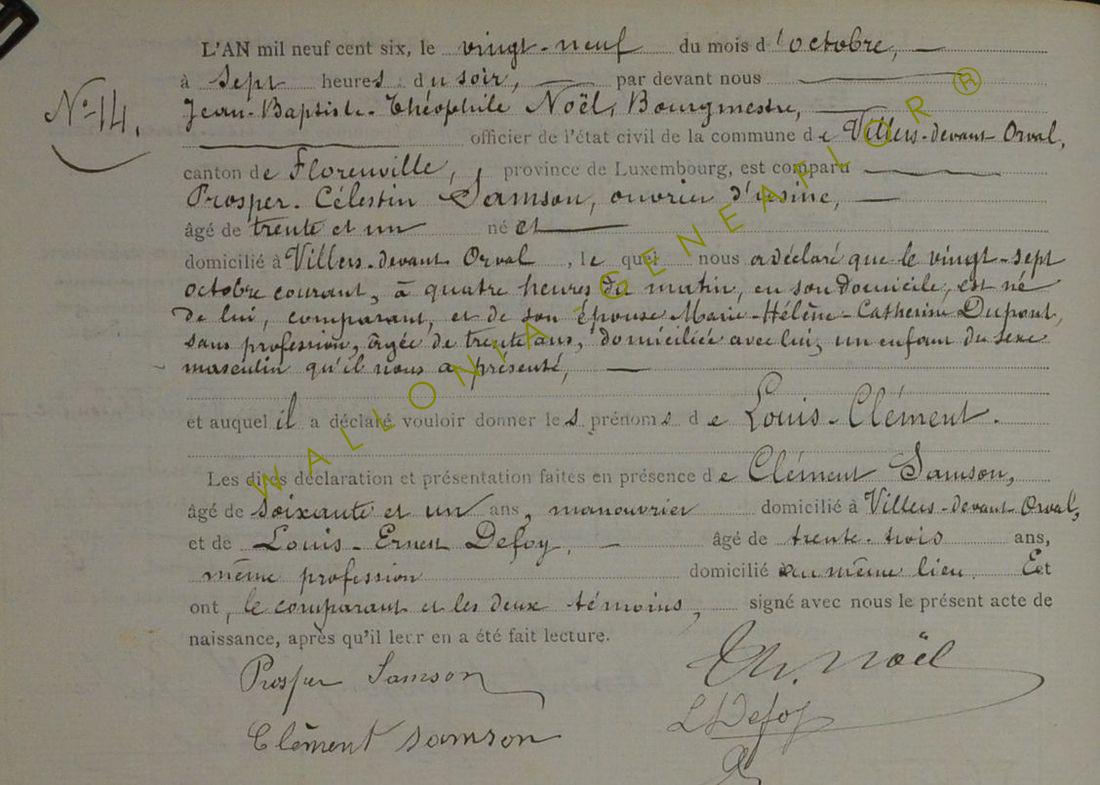 L'AN mil neuf cent six, le vingt-neuf du mois d'octobre,
à sept heures du soir, par devant nous
N° 14.
Jean-Baptiste-Théophile Noël, Bourgmestre,
officier de l'état civil de la commune de Villers-devant Orval,
canton de Florenville, province de Luxembourg, est comparu
Prosper-Célestin Samson, ouvrier d'usine,
âgé de trente et un né et
domicilié à Villers-devant Orval, le quel nous a déclaré que le vingt-sept
octobre courant, à quatre heures du matin, en son domicile, est né
de lui, comparant, et de son épouse Marie-Hélène-Catherine Dupont,
sans profession, âgée de trente ans, domiciliée avec lui, un enfant du sexe
masculin qu'il nous a présenté,
et auquel il a déclaré vouloir donner les prénoms de Louis-Clément.
Les dites déclaration et présentation faites en présence de Clément Samson,
âgé de soixante et un ans, manouvrier domicilié à Villers-devant Orval,
et de Louis-Ernest Defoy, âgé de trente-trois ans,
même profession domicilié au même lieu. Et
ont, le comparant et les deux témoins, signé avec nous le présent acte de
naissance, après qu'il leur en a été fait lecture.
Th. Noël
Prosper Samson
L Defoy
Clément Samson
WALLONIA-GENEAFLOR®